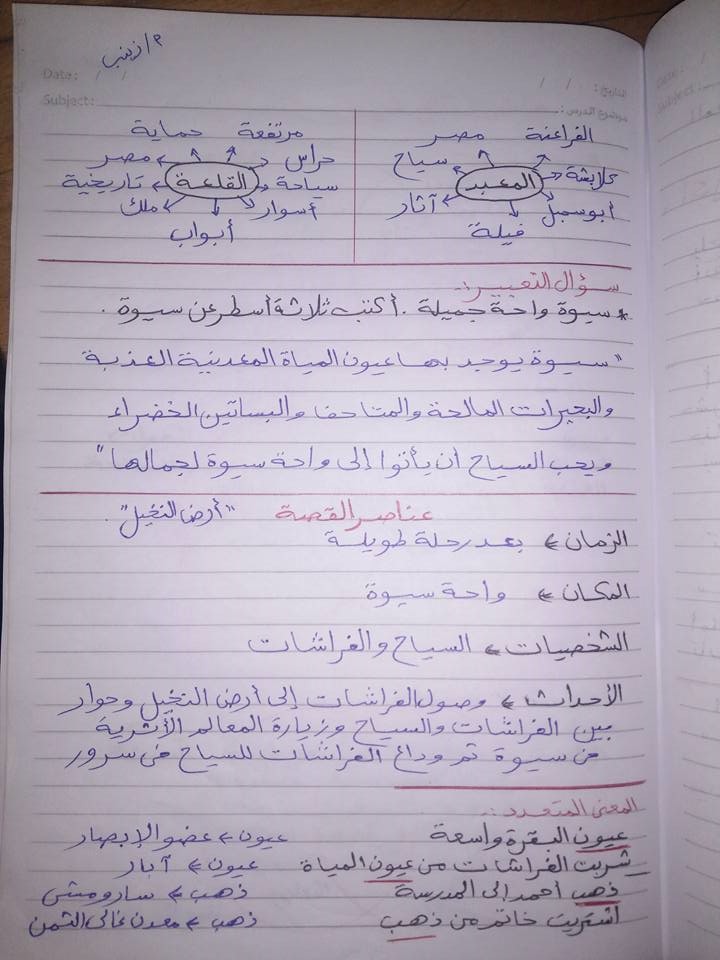 م/ زينب
Date: / /
التاريخ: / /
Subject:
موضوع الدرس:
الفراعنة مصر
سياح كلابشة
المعبد
آثار أبوسمبل
فيلة
مرتفعة حماية
حراس مصر
سياحة القلعة تاريخية
أسوار ملك
أبواب
سؤال التعبير:-
* سيوة واحة جميلة . أكتب ثلاثة أسطر عن سيوة .
"سيوة يوجد بها عيون المياة المعدنية العذبة
والبحيرات المالحة والمتاحف والبساتين الخضراء
ويحب السياح أن يأتوا إلى واحة سيوة لجمالها"
عناصر القصة "أرض النخيل" .
الزمان ← بعد رحلة طويلة
المكان ← واحة سيوة
الشخصيات ← السياح والفراشات
الأحداث ← وصول الفراشات إلى أرض النخيل وحوار
بين الفراشات والسياح وزيارة المعالم الأثرية
فى سيوة ثم وداع الفراشات للسياح فى سرور
المعنى المتعدد:-
عيون البقرة واسعة عيون ← عضو الإبصار
شربت الفراشات من عيون المياة عيون ← آبار
ذهب أحمد إلى المدرسة ذهب ← سار ومشى
اشتريت خاتم من ذهب ذهب ← معدن غالى الثمن